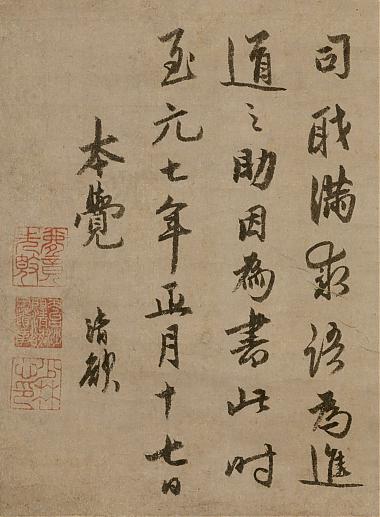 司職滿求語為進
道之助因為書此時
至元七年正月十七日
本覺 清欲